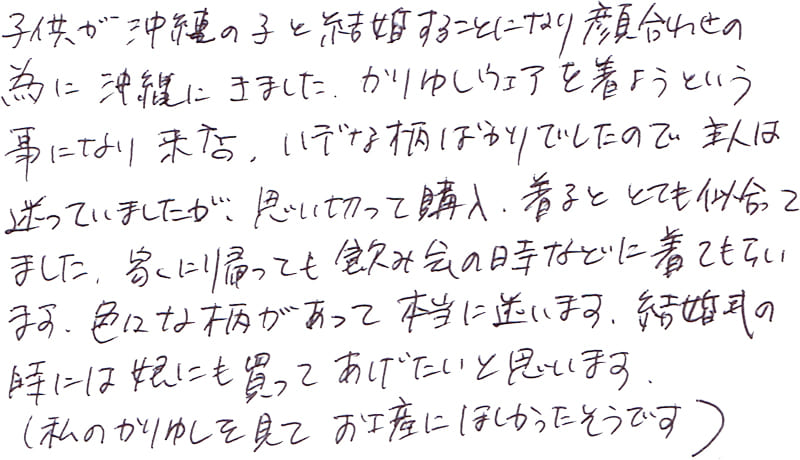 子供が沖縄の子と結婚することになり顔合わせの
為に沖縄にきました.かりゆしウェアを着ようという
事になり来店.ハデな柄ばかりでしたので主人は
迷っていましたが、思い切って購入.着ると とても似合って
ました.帰っても飲み会の時などに着てもらい
ます.色んな柄があって本当に迷います.結婚式の
時には娘にも買ってあげたいと思います.
(私のかりゆしを見てお土産にほしかったそうです)